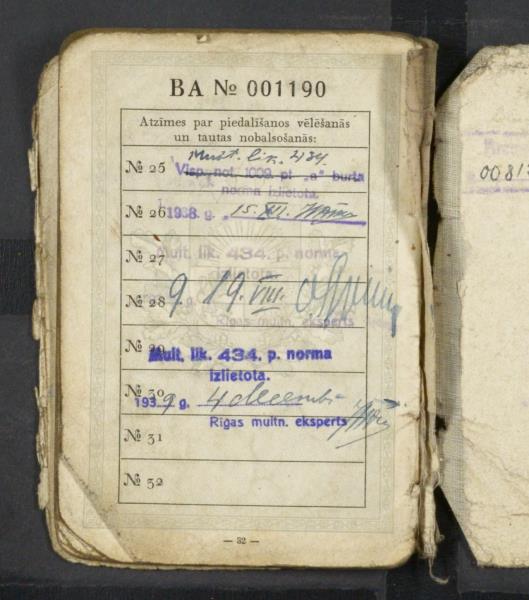 BA № 001190
Atzīmes par piedalīšanos vēlēšanās
un tautas nobalsošanās:
Muit. lik. 434.
№ 25 Visp. not. 1009. pt „a" burta
norma izlietota.
№ 26 1938. g. „15. XII.
№ 27 Muit. lik. 434. p. norma
izlietota.
№ 28 9. 19. VIII.
g.
Rīgas muitn. eksperts
№ 29
Muit. lik. 434. p. norma
izlietota.
№ 30
1939 g. 4 decembr
Rīgas muitn. eksperts
№ 31
№ 32
— 32 —
0081